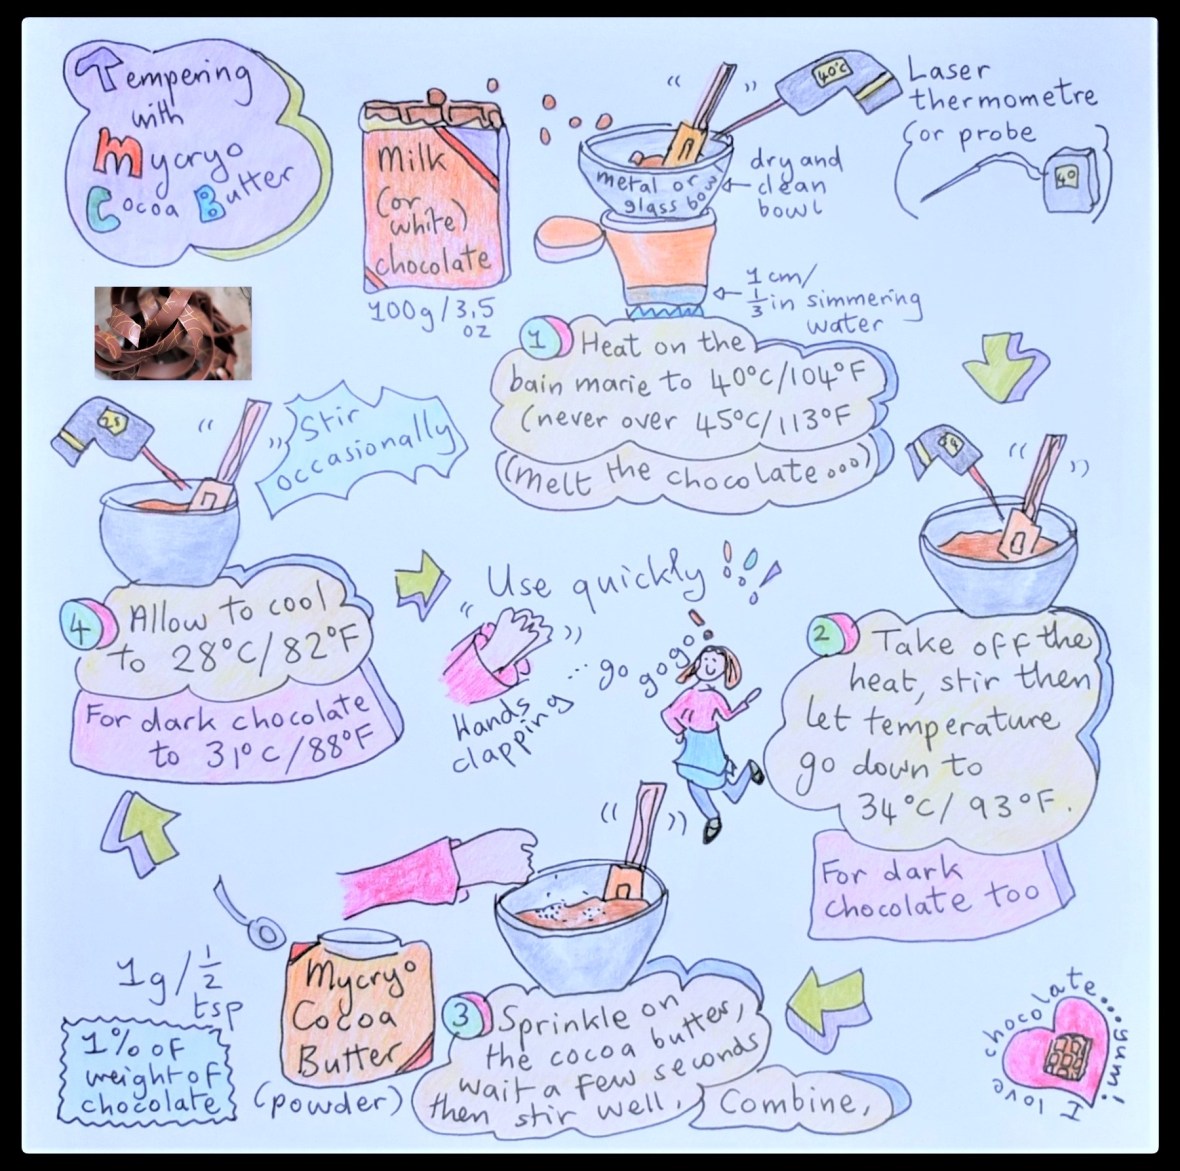 Tempering
with
Mycryo
Cocoa Butter
Milk
(or
white)
chocolate
100g/3,5
oz
metal or
glass bowl
40°C
Laser
thermometre
(or probe
40
)
dry and
clean
bowl
1 cm/
1/3 in simmering
water
1 Heat on the
bain marie to 40°C/104°F
(never over 45°C/113°F
(melt the chocolate ooo)
2 Take off the
heat, stir then
let temperature
go down to
34°C/93°F.
For dark
chocolate too
Mycryo
Cocoa
Butter
(powder)
1g/1/2
tsp
1% of
weight of
chocolate
3 Sprinkle on
the cocoa butter,
wait a few seconds
then stir well.
Combine,
Stir
occasionally
4 Allow to cool
to 28°C/82°F
For dark chocolate
to 31°C/88°F
Use quickly!!!
Hands
clapping
... go gogo
I love chocolate...yum!